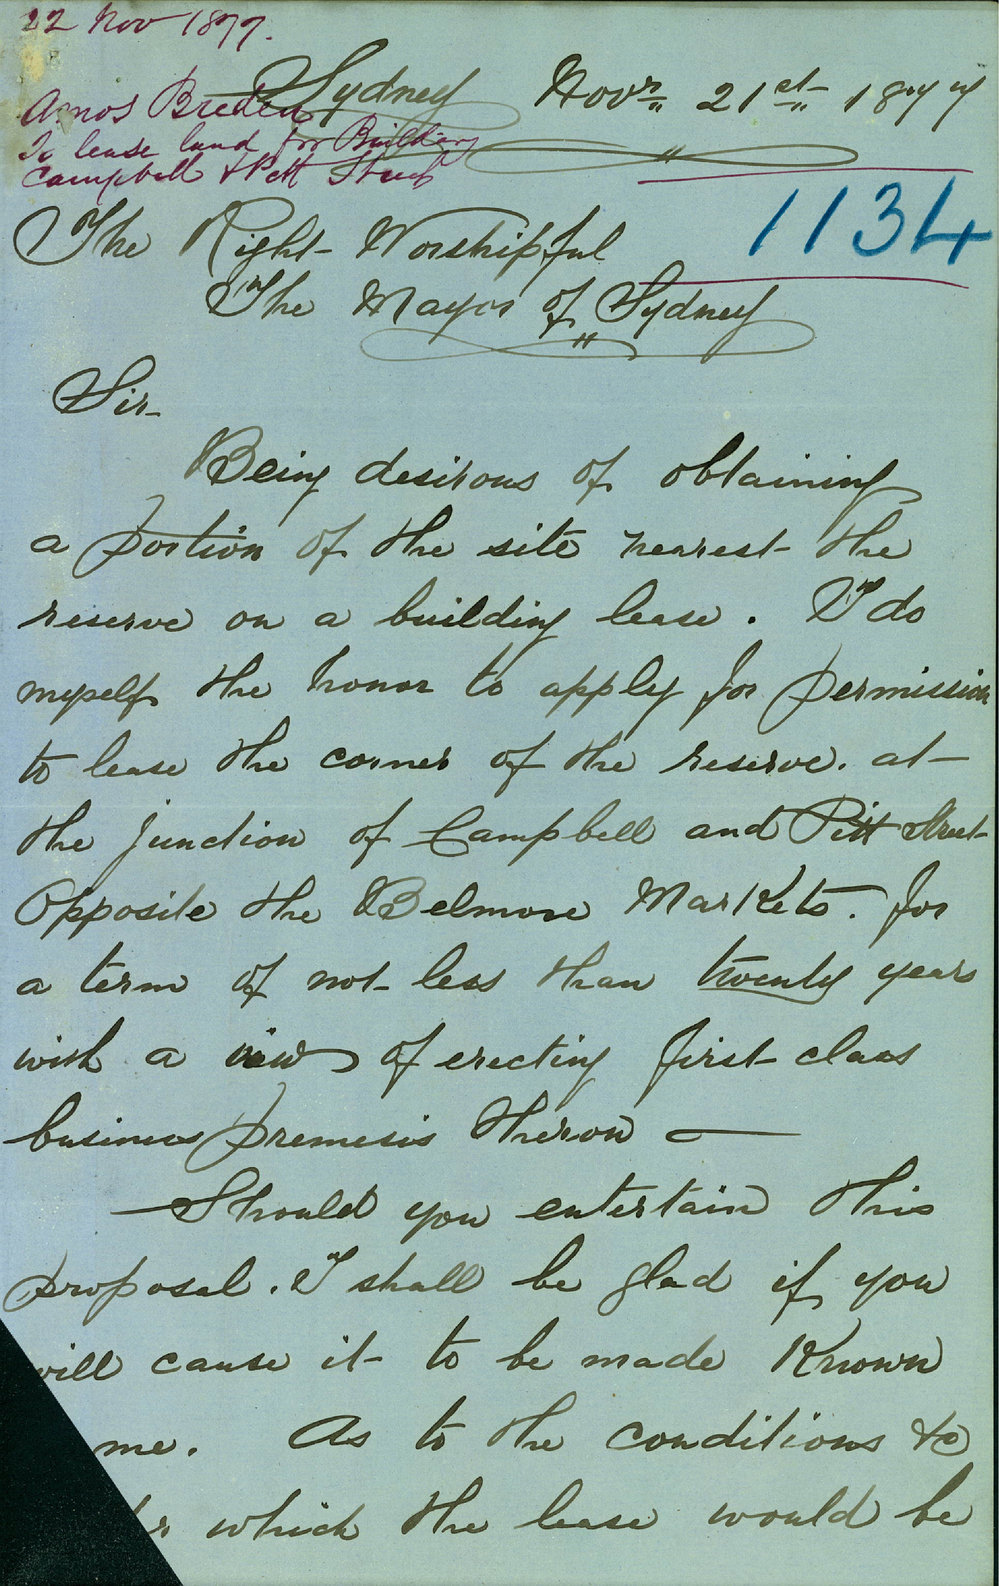 22 Nov 1877.
Sydney Novr 21st 1877
Amos Breden
To lease land for Building
Campbell & Pitt Streets
1134
The Right Worshipful
The Mayor of Sydney
Sir
Being desirous of obtaining
a portion of the site nearest the
reserve on a building lease. I do
myself the honor to apply for permission
to lease the corner of the reserve. at
the junction of Campbell and Pitt Street
Opposite the Belmore Markets. for
a term of not less than twenty years
with a view of erecting first class
business premesis theron —
Should you entertain this
proposal. I shall be glad if you
will cause it to be made Known
me. As to the conditions &c
which the lease would be